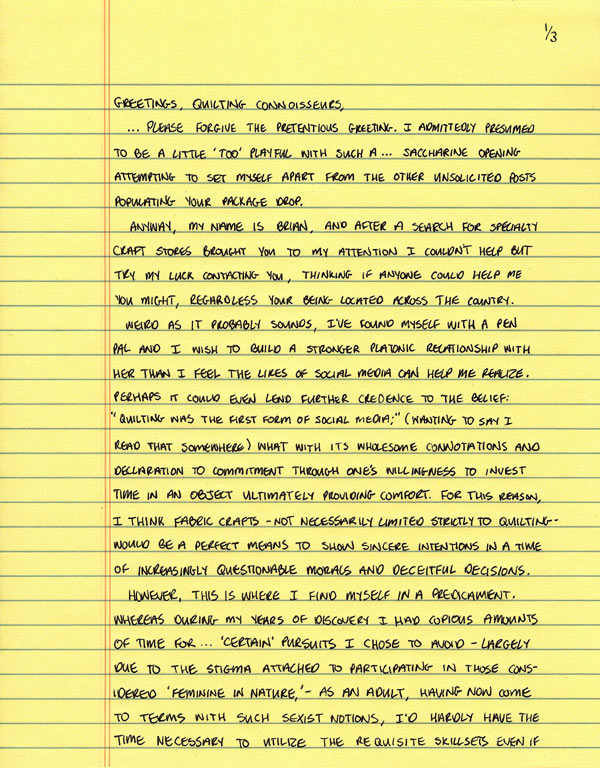 1/3
GREETINGS, QUILTING CONNOISSEURS,
... PLEASE FORGIVE THE PRETENTIOUS GREETING. I ADMITTEDLY PRESUMED
TO BE A LITTLE 'TOO' PLAYFUL WITH SUCH A ... SACCHARINE OPENING
ATTEMPTING TO SET MYSELF APART FROM THE OTHER UNSOLICITED POSTS
POPULATING YOUR PACKAGE DROP.
ANYWAY, MY NAME IS BRIAN, AND AFTER A SEARCH FOR SPECIALTY
CRAFT STORES BROUGHT YOU TO MY ATTENTION I COULDN'T HELP BUT
TRY MY LUCK CONTACTING YOU, THINKING IF ANYONE COULD HELP ME
YOU MIGHT, REGARDLESS YOUR BEING LOCATED ACROSS THE COUNTRY.
WEIRD AS IT PROBABLY SOUNDS, I'VE FOUND MYSELF WITH A PEN
PAL AND I WISH TO BUILD A STRONGER PLATONIC RELATIONSHIP WITH
HER THAN I FEEL THE LIKES OF SOCIAL MEDIA CAN HELP ME REALIZE.
PERHAPS IT COULD EVEN LEND FURTHER CREDENCE TO THE BELIEF:
"QUILTING WAS THE FIRST FORM OF SOCIAL MEDIA;" (WANTING TO SAY I
READ THAT SOMEWHERE) WHAT WITH ITS WHOLESOME CONNOTATIONS AND
DECLARATION TO COMMITMENT THROUGH ONE'S WILLINGNESS TO INVEST
TIME IN AN OBJECT ULTIMATELY PROVIDING COMFORT. FOR THIS REASON,
I THINK FABRIC CRAFTS - NOT NECESSARILY LIMITED STRICTLY TO QUILTING -
WOULD BE A PERFECT MEANS TO SHOW SINCERE INTENTIONS IN A TIME
OF INCREASINGLY QUESTIONABLE MORALS AND DECEITFUL DECISIONS.
HOWEVER, THIS IS WHERE I FIND MYSELF IN A PREDICAMENT.
WHEREAS DURING MY YEARS OF DISCOVERY I HAD COPIOUS AMOUNTS
OF TIME FOR ... 'CERTAIN' PURSUITS I CHOSE TO AVOID - LARGELY
DUE TO THE STIGMA ATTACHED TO PARTICIPATING IN THOSE CONS-
IDERED 'FEMININE IN NATURE,' - AS AN ADULT, HAVING NOW COME
TO TERMS WITH SUCH SEXIST NOTIONS, I'D HARDLY HAVE THE
TIME NECESSARY TO UTILIZE THE REQUISITE SKILLSETS EVEN IF